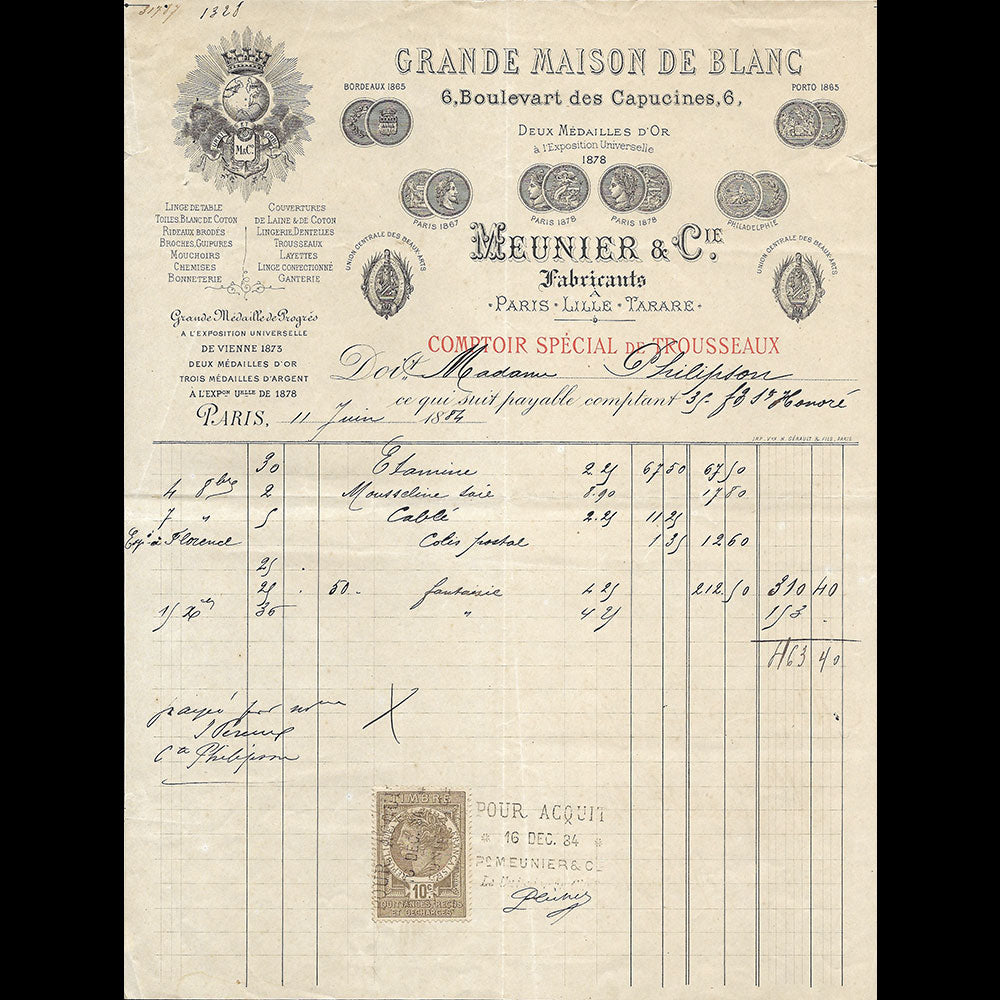 31777 1328
GRANDE MAISON DE BLANC
6, Boulevart des Capucines, 6,
BORDEAUX 1865
PORTO 1865
DEUX MÉDAILLES D'OR
à l'Exposition Universelle
1878
M&Cie
PARIS 1867
PARIS 1878
PARIS 1878
PHILADELPHIE
LINGE DE TABLE
TOILES, BLANC DE COTON
RIDEAUX BRODÉS
BROCHES, GUIPURES
MOUCHOIRS
CHEMISES
BONNETERIE
COUVERTURES
DE LAINE & DE COTON
LINGERIE, DENTELLES
TROUSSEAUX
LAYETTES
LINGE CONFECTIONNÉ
GANTERIE
MEUNIER & CIE
UNION CENTRALE DES BEAUX-ARTS
UNION CENTRALE DES BEAUX-ARTS
Fabricants
À
PARIS - LILLE - TARARE
Grande Médaille de Progrès
A L'EXPOSITION UNIVERSELLE
DE VIENNE 1873
DEUX MÉDAILLES D'OR
TROIS MÉDAILLES D'ARGENT
À L'EXPON ULLE DE 1878
COMPTOIR SPÉCIAL DE TROUSSEAUX
Doit Madame Philipson
ce qui suit payable comptant 35 fg St Honoré
PARIS, 11 Juin 1884
IMP. VVE N. GÉRAULT & FILS, PARIS
30 Etamine 2.25 67 50 67 50
4 8bre 2 Mousseline soie 8.90 17 80
7 " 5 Cablé 2.25 11 25
Expé à Florence Colis postal 1 35 12 60
25
25 50 fantaisie 4 25 212 50 310 40
15 Xbre 36 " 4 25 153
463 40
payé par
Cte Philipson
TIMBRE
10c
QUITTANCES, REÇUS
ET DÉCHARGES
POUR ACQUIT
* 16 DEC. 84 *
Pr MEUNIER & Cie